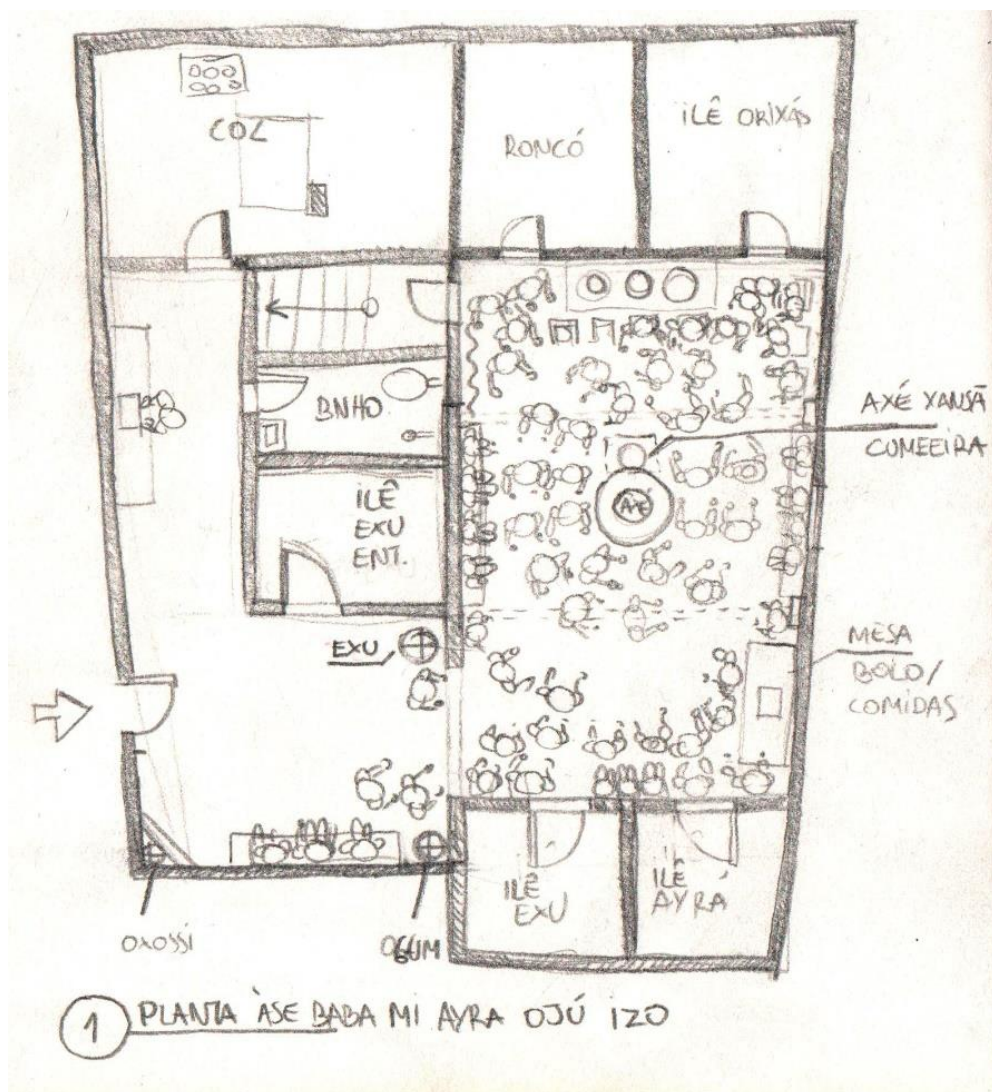 COZ
RONCÓ
ILÊ ORIXÁS
BNHO
ILÊ
EXU
ENT.
AXÉ
AXÉ YANSÃ
CUMEEIRA
EXU
MESA
BOLO/
COMIDAS
ILÊ
EXU
ILÊ
AYRÁ
OXOSSI
OGUM
1 PLANTA ÀSE BABA MI AYRA OJÚ IZO